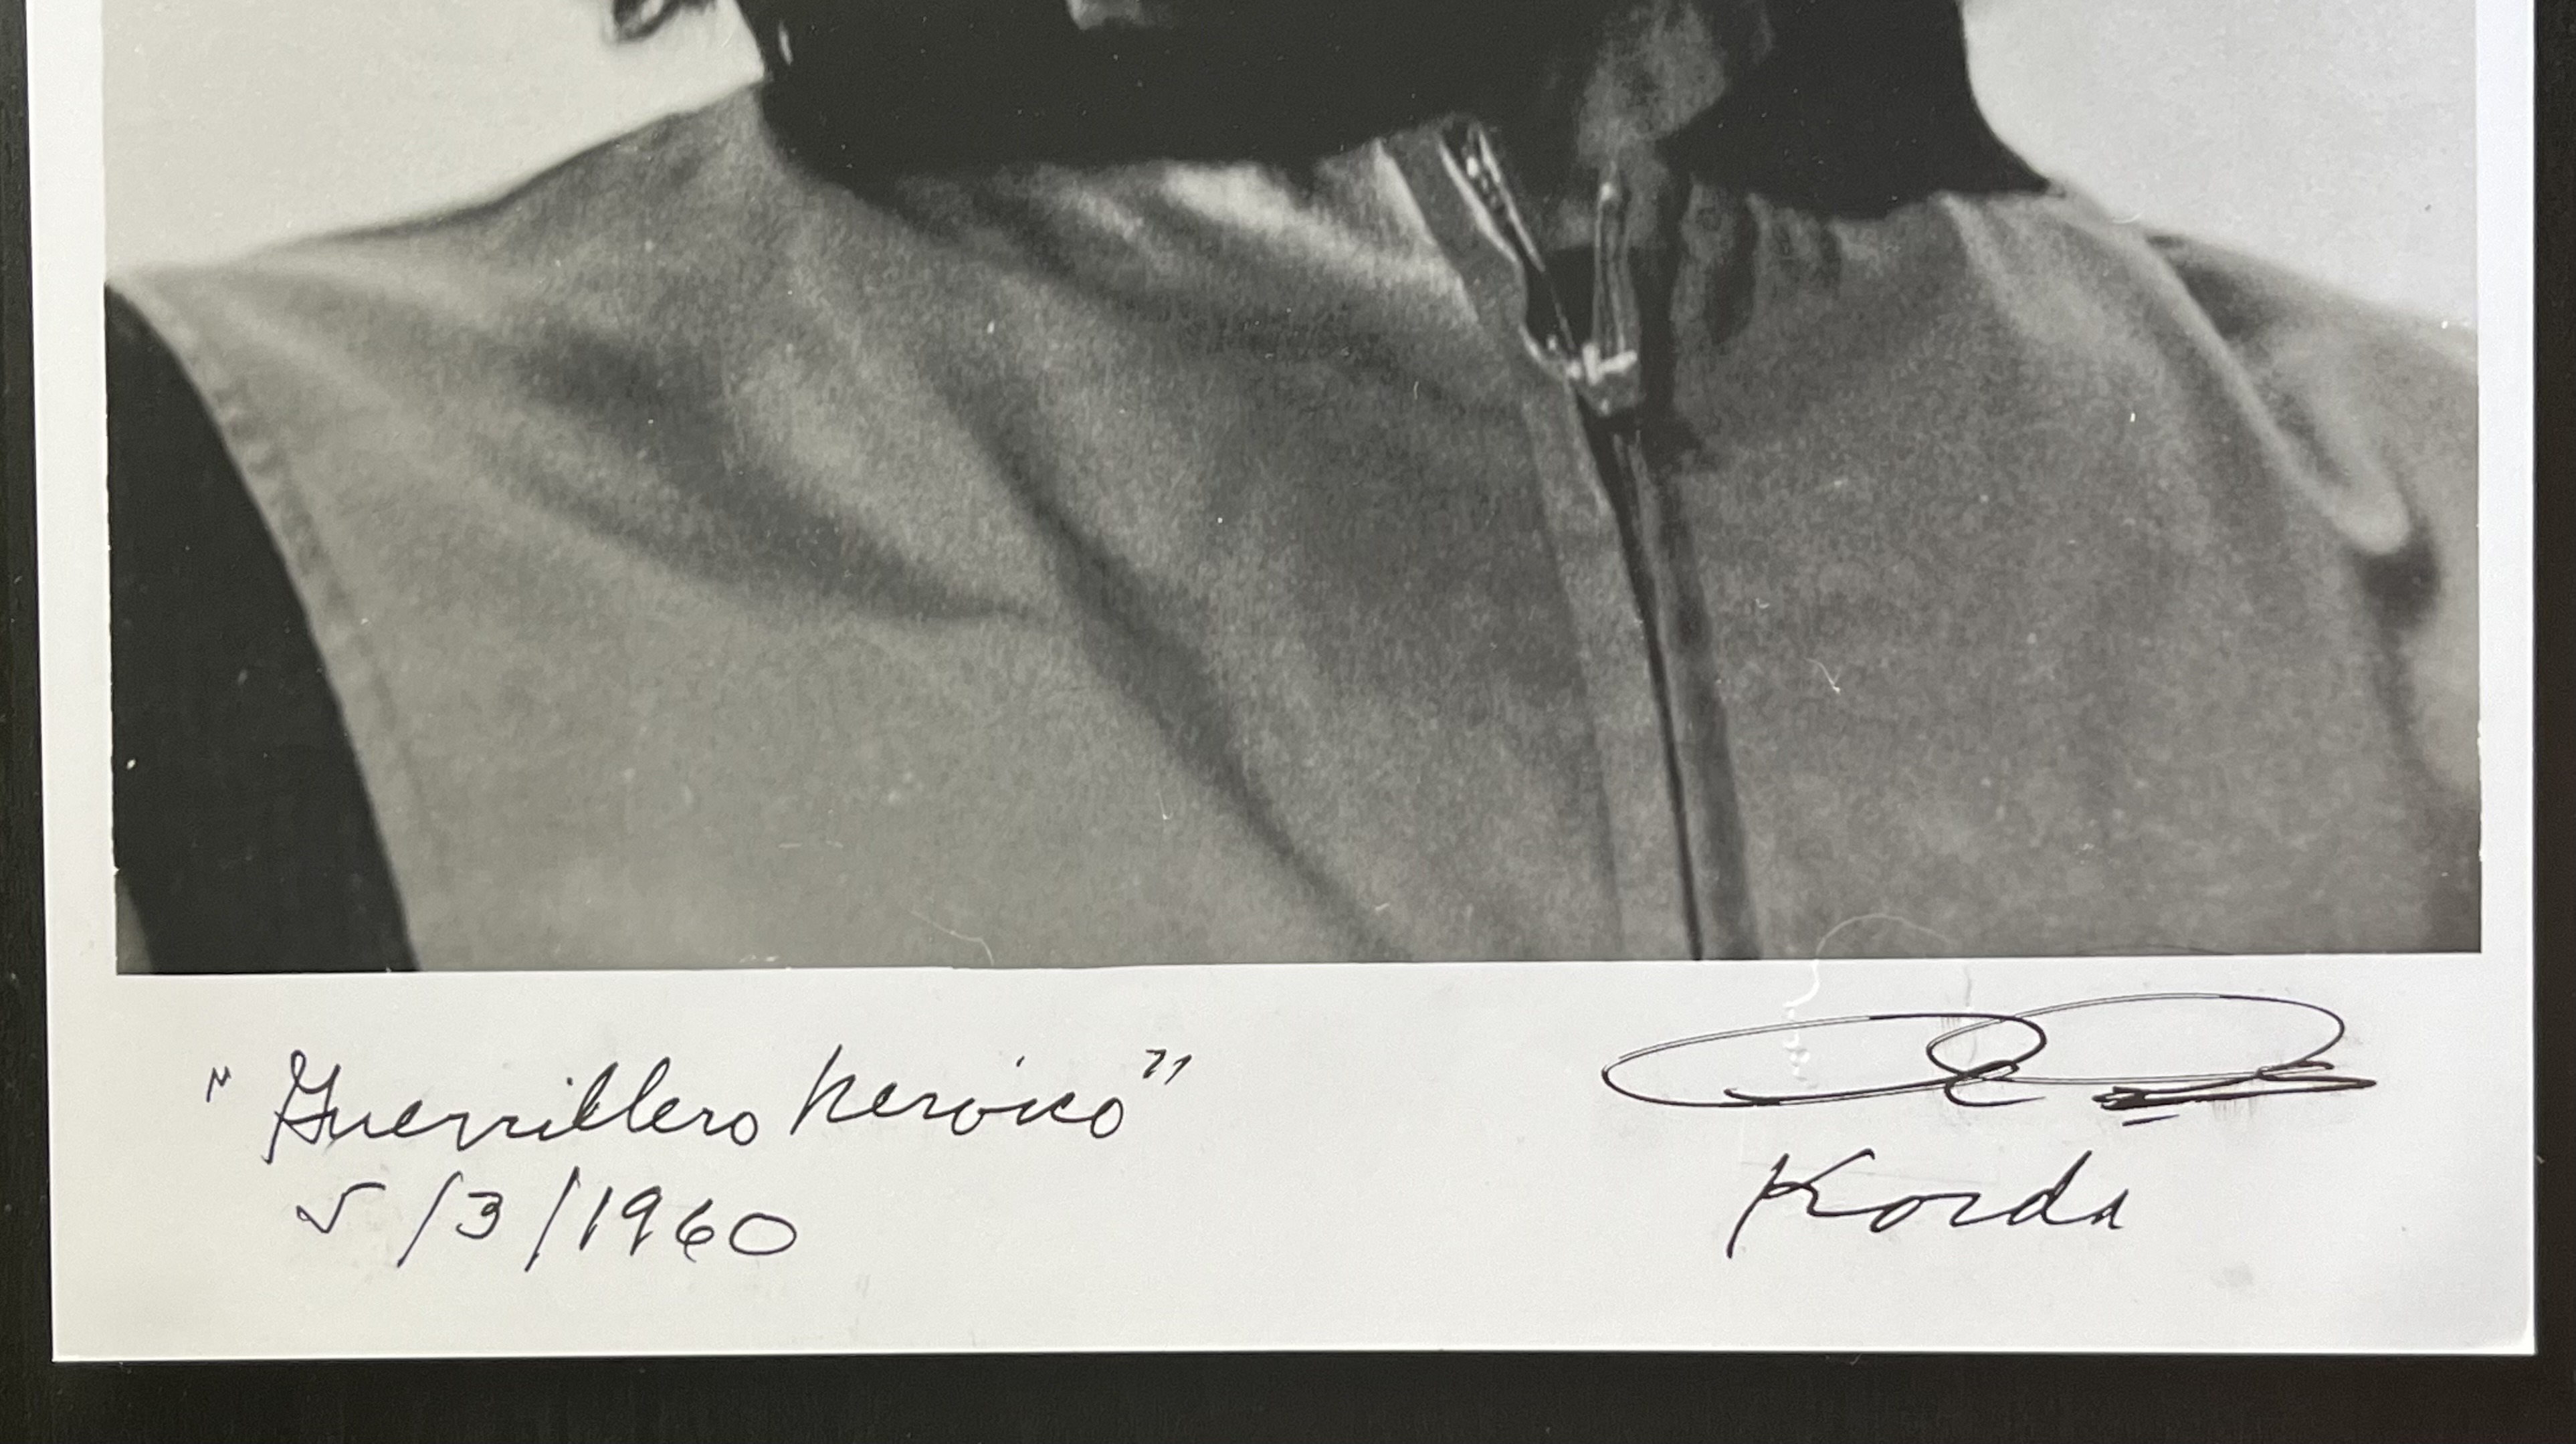 "Guerrillero heroico"
5/3/1960
Korda